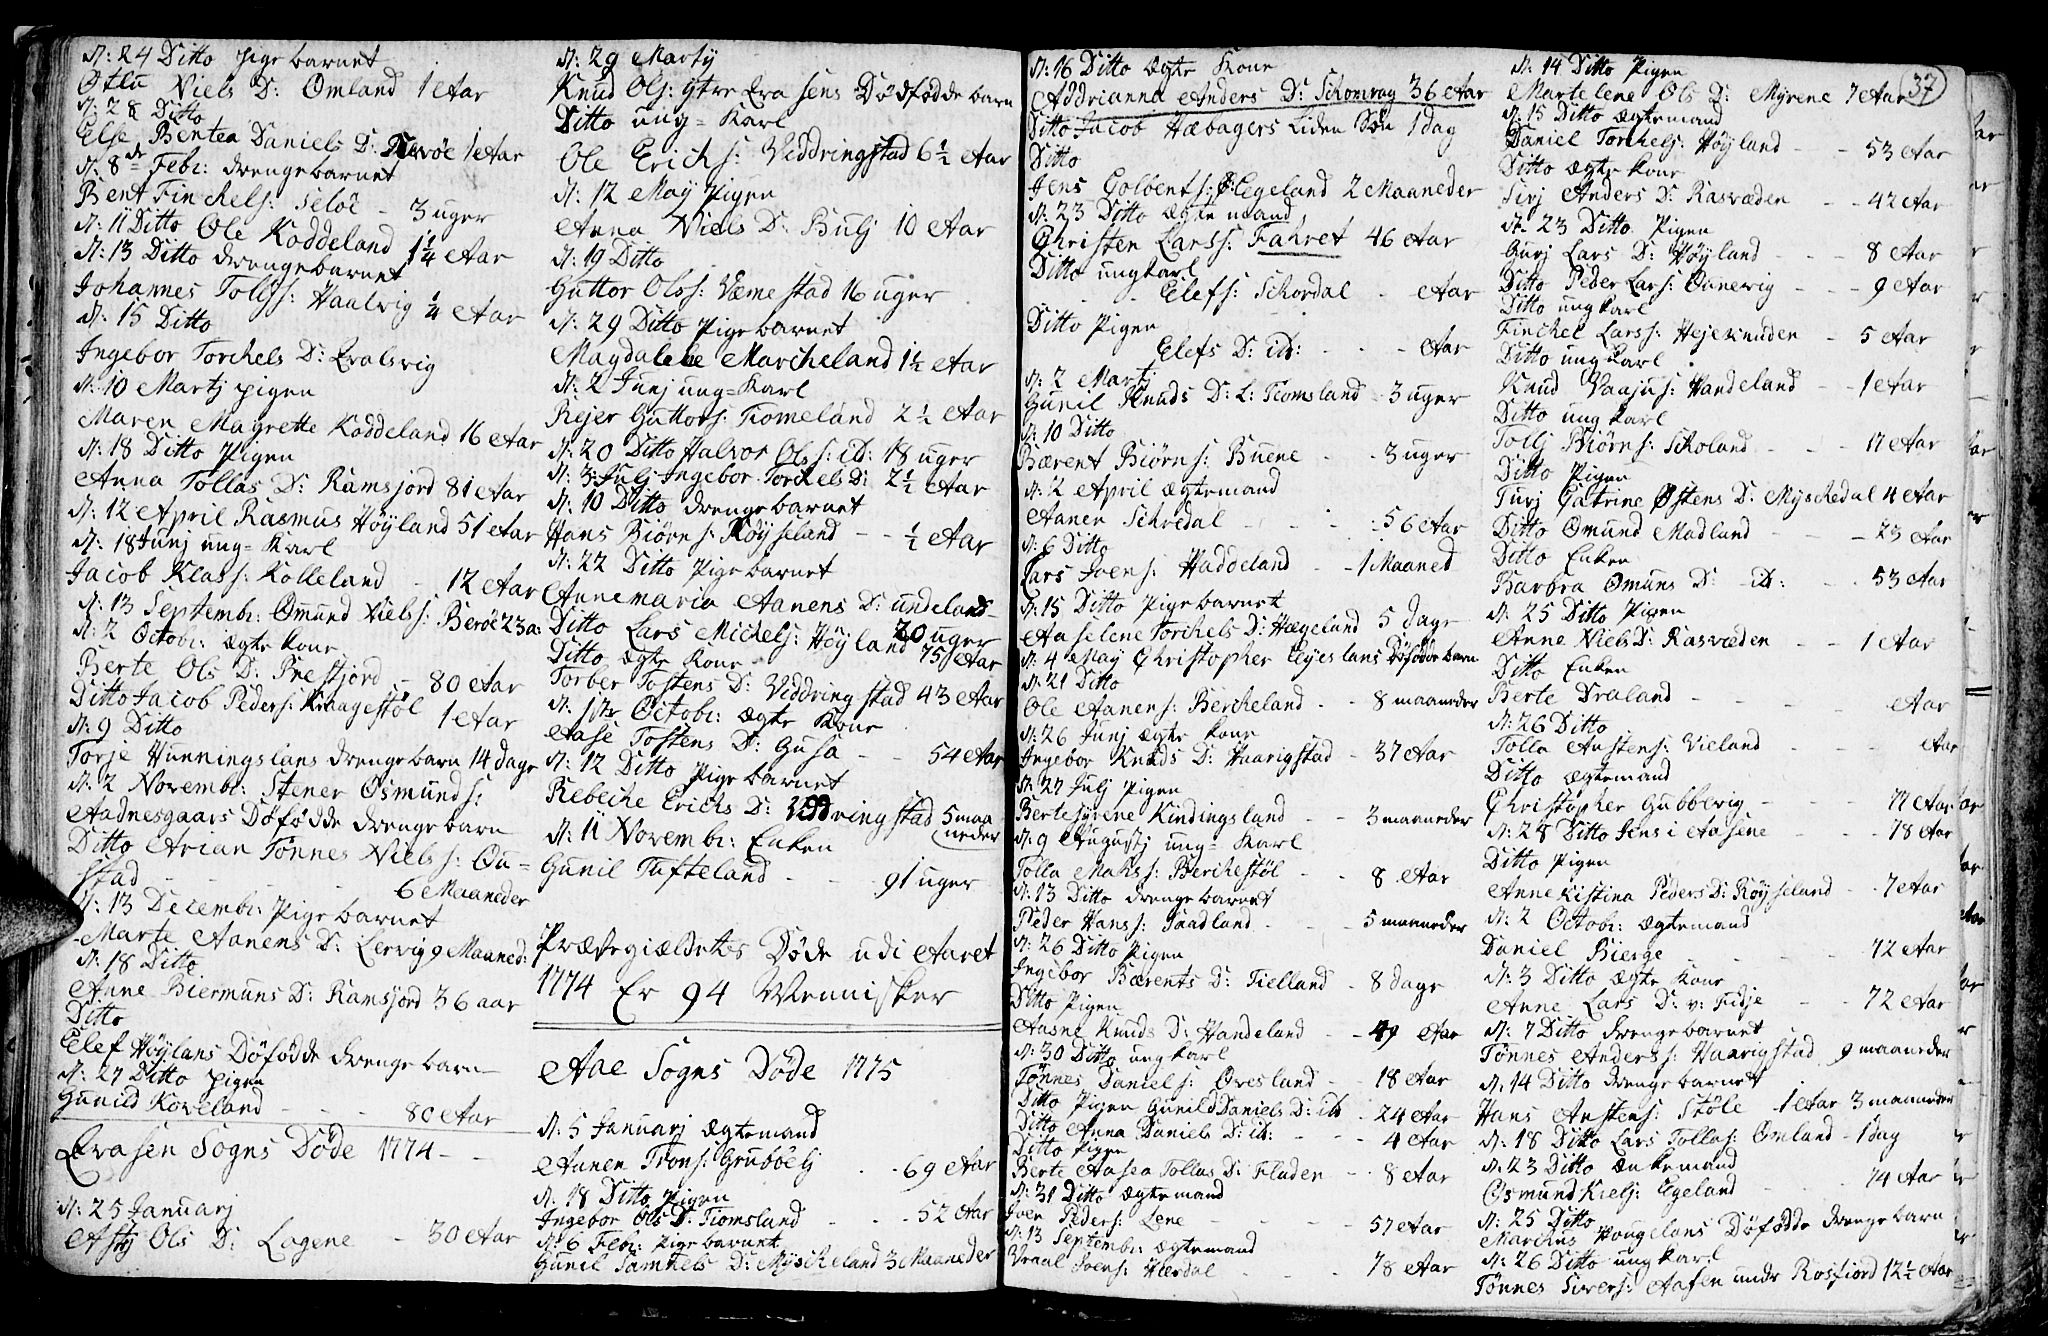 d: 24 Ditto pige barnet
Otlu Niels D: Omland 1 Aar
d: 28 Ditto
Else Bentea Daniels D: 1 Aar
d: 8de Febr: drengebarnet
Bent Finchels: Seloe - 3 uger
d: 11 Ditto Ole Koddeland 1¼ Aar
d: 13 Ditto drengebarnet
Johannes Tolfs: Haalvig ¼ Aar
d: 15 Ditto
Ingebor Torchels D: Qvalsvig
d: 10 Martj pigen
Maren Magrette Koddeland 16 Aar
d: 18 Ditto Pigen
Anna Tollas D: Ramsjord 81 Aar
d: 12 April Rasmus Høyland 51 Aar
d: 18 Junj ung-Karl
Jacob Klass: Kolleland - 12 Aar
d: 13 Septembr: Omund Niels: Berøe 23 a:
d: 2 Octobr: ægte kone
Berte Ols D: Prestjord - 80 Aar
Ditto Jacob Peders: Kraagestøl 1 Aar
d: 9 Ditto
Torje Hunningslans drengebarn 14 dage
d: 2 Novembr: Stener Osmunds:
Aadnesgaars Døfødde drengebarn
Ditto Arian Tønnes Niels: Ou-
stad - - - 6 Maaneder
d: 13 Decembr: Pige barnet
Marte Aanens D: Lervig 9 Maaned:
d: 18 Ditto
Anne Biermuns D: Ramsjord 36 aar
Ditto
Elef Høylans Døfødde drenge barn
d: 27 Ditto pigen
Gunild Koveland - - - 80 Aar
Qvasen Sogns Døde 1774 - -
d: 25 Januarj
Asbj Ols D: Lagene - 30 Aar
d: 29 Martij
Knud Ols: ytre Qvasens Dødfødde barn
Ditto ung-Karl
Ole Erichs: Viddringstad 6½ Aar
d: 12 May Pigen
Anna Niels D: Bulj 10 Aar
d: 19 Ditto
Guttor Olss: Væmestad 16 uger
d: 29 Ditto Pige barnet
Magdalene Marcheland 1½ Aar
d: 2 Junj ung-Karl
Rejer Guttors: Tiomeland 2½ Aar
d: 20 Ditto Halvor Ols: id: 18 uger
d: 3 Julj Ingebor Torchels D: 2½ Aar
d: 10 Ditto drengebarnet
Hans Biørns: Røyseland - - ½ Aar
d: 22 Ditto Pige barnet
Annemaria Aanens D: undeland -
Ditto Lars Michels: Høyland 20 uger
Ditto ægte Kone - 75 Aar
Torber Tostens D: Viddringstad 43 Aar
d: 1ste Octobr: ægte Kone
Aase Tostens D: Gusa - - 54 Aar
d: 12 Ditto Pige barnet
Rebeche Erichs D: Viddringstad 5 maa
neder
d: 11 Novembr: Enken
Gunil Tufteland - - - 91 uger
Præstegiældetes Døde udi Aaret
1774 Er 94 Mennisker
Aae Sogns Døde 1775
d: 5 Januarj Ægtemand
Aanen Trons: Grubøelj - - 69 Aar
d: 18 Ditto Pigen
Ingebor Ols D: Tiomsland - - - 52 Aar
d: 6 Febr: Pige barnet
Gunil Samuels D: Myscheland 3 Maaneder
d: 16 Ditto Ægte Kone
Addrianna Anders D: Skomrag 36 Aar
Ditto Jacob Hæbagers Liden Søn 1 dag
Ditto
Jens Golbents: Egeland 2 Maaneder
d: 23 Ditto ægte mand
Christen Larss: Fahret 46 Aar
Ditto ungkarl
- - - Elefs: Schordal - Aar
Ditto Pigen
Elefs D: id: - - - - Aar
d: 2 Martj
Gunil Knuds D: L: Tiomsland 3 uger
d: 10 Ditto
Bærent Biørns: Buene - - 3 uger
d: 2 April ægtemand
Aanen Schredal - - - - 56 Aar
d: 6 Ditto
Lars Svens: Haddeland - - 1 Maaned
d: 15 Ditto Pige barnet
Aaselene Torchels D: Hægeland 5 dage
d: 4 May Christopher Eyeslans Døfødde barn
d: 21 Ditto
Ole Aanens: Bercheland - - 8 maaneder
d: 26 Junj ægte kone
Ingebor Knuds D: Haarigstad - 37 Aar
d: 27 Julj Pigen
Bertesyrene Kindingsland - - 3 maaneder
d: 9 Augustj ung-Karl
Tolla Mahss: Berchestøl - - 8 Aar
d: 13 Ditto drengebarnet
Peder Hanss: Saadland - - - 5 maaneder
d: 26 Ditto Pigen
Ingebor Bærents D: Fielland - 8 dage
Ditto Pigen
Aasne Knuds D: Handeland - - 49 Aar
d: 30 Ditto ungkarl
Tønnes Daniels: Øvesland - - 18 Aar
Ditto Pigen Gunild Daniels D: id - 24 Aar
Ditto Anna Daniels D: id: - - - 4 Aar
Ditto Pigen
Berte Aasea Tollas D: Fladen - - 8 Aar
d: 31 Ditto ægtemand
Iver Peders: Lene - - - - 57 Aar
d: 13 Septembr: ægtemand
Vraal Svens: Hærdal - - - - 78 Aar
37
d: 14 Ditto Pigen
Martelene Ols D: Myrene 7 Aar
d: 15 Ditto Ægtemand
Daniel Torchels: Høyland - - - 53 Aar
Ditto ægte kone
Sirj Anders D: Rasvæden - - - 42 Aar
d: 23 Ditto Pigen
Gurj Lars D: Høyland - - - 8 Aar
Ditto Peder Lars: Ounevig - - - 9 Aar
Ditto ungkarl
Finchel Larss: Hejeknuden - 5 Aar
Ditto ungkarl
Knud Vaajus: Handeland - - 1 Aar
Ditto ungkarl
Tollj Biørns: Scholand - - - 17 Aar
Ditto Pigen
Turj Catrine Østens D: Myschedal 4 Aar
Ditto Omund Madland - - - 23 Aar
Ditto Enken
Barbra Omuns D: id: - - 53 Aar
d: 25 Ditto Pigen
Anne Niels D: Rasvæden - - 1 Aar
Ditto Enken
Berte Draland - - - - Aar
d: 26 Ditto
Tolla Anstens: Vieland - - - - Aar
Ditto ægtemand
Christopher Gubbevig - - - - 77 Aar
d: 28 Ditto Jens i Aasene - - - 78 Aar
Ditto Pigen
Anne Kistina Peders D: Røyseland - - 7 Aar
d: 2 Octobr: ægtemand
Daniel Bierge - - - - - 72 Aar
d: 3 Ditto ægte kone
Anne Lars D: v: Fidje - - 72 Aar
d: 7 Ditto drengebarnet
Tønnes Anders: Haarigstad 9 maaneder
d: 14 Ditto drengebarnet
Hans Anstens: Støle 1 Aar 3 maaneder
d: 18 Ditto Lars Tollas: Omland - 1 dag
d: 23 Ditto enkemand
Osmund Kiels: Egeland - - 74 Aar
d: 25 Ditto
Marchus Hougelans Døfødde drengebarn
d: 26 Ditto ungkarl
Tønnes Sivers: Aasen under Rosfiord 12½ Aar